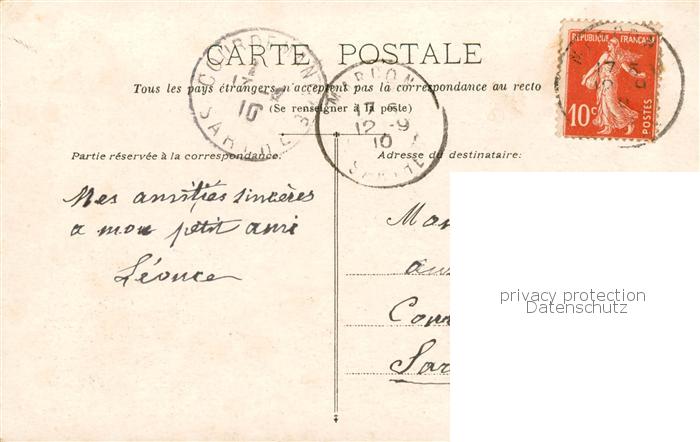 CARTE POSTALE
Tous les pays étrangers n'acceptent pas la correspondance au recto
(Se renseigner à la poste)
Partie réservée à la correspondance.
Adresse du destinataire:
Mes amitiés sincères
a mon petit ami
Léonce
RÉPUBLIQUE FRANÇAISE
10c
POSTES
MARÇON
12 -9
10
SARTHE
10
privacy protection
Datenschutz